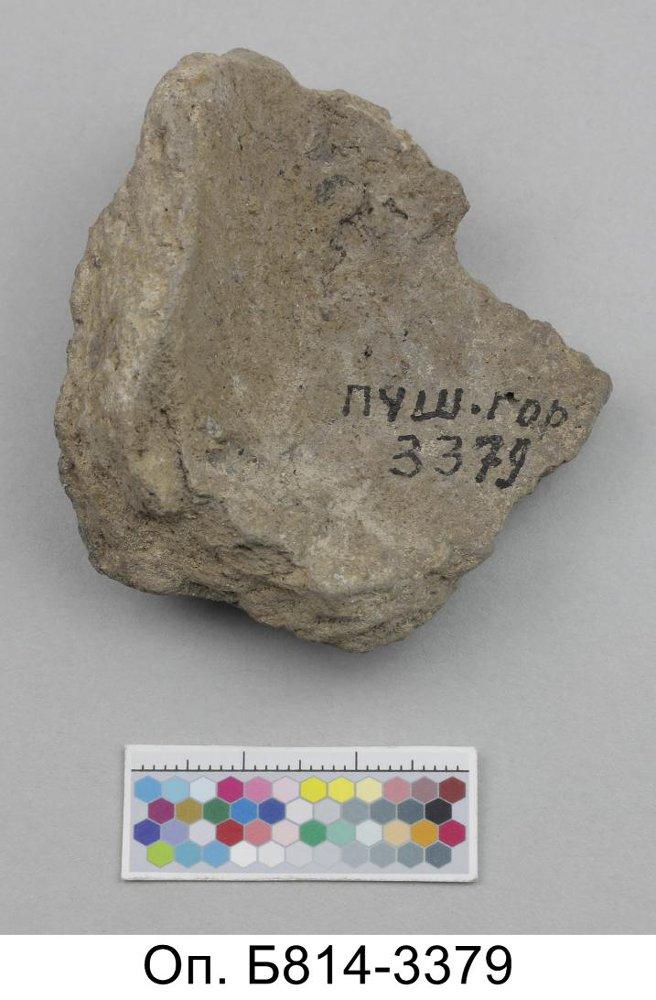 пуш.гор
3379
Оп. Б814-3379